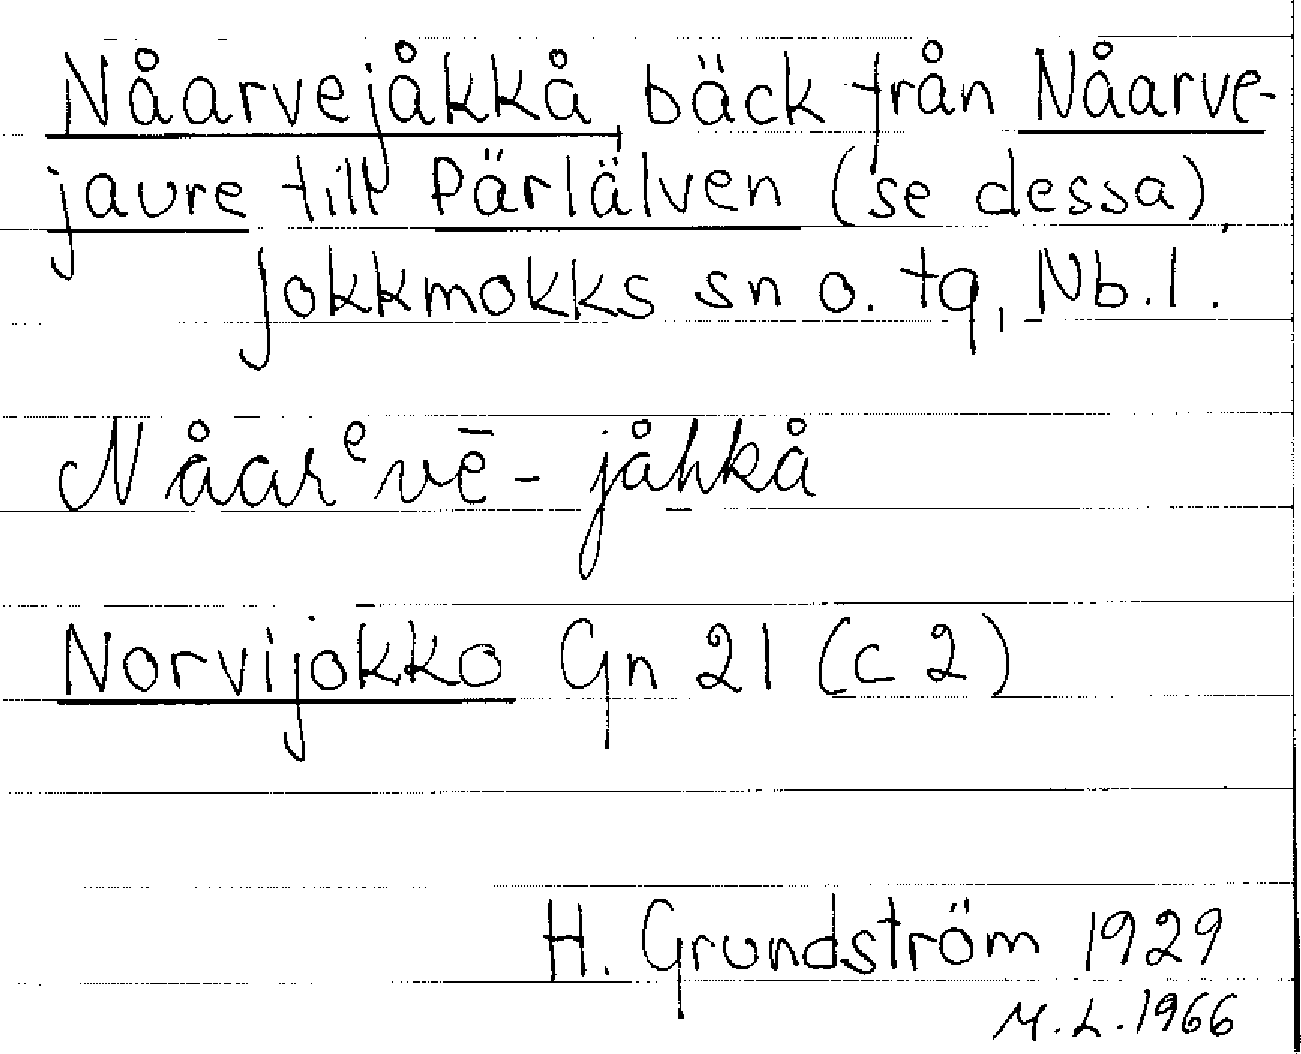 Nåarvejåkkå, bäck från Nåarve-
jaure till Pärlälven (se dessa),
Jokkmokks sn o. tg, Nb. l.
Nåarᵉvē-jåhkå
Norvijokko Gn 21 (c 2)
H. Grundström 1929
M.L. 1966